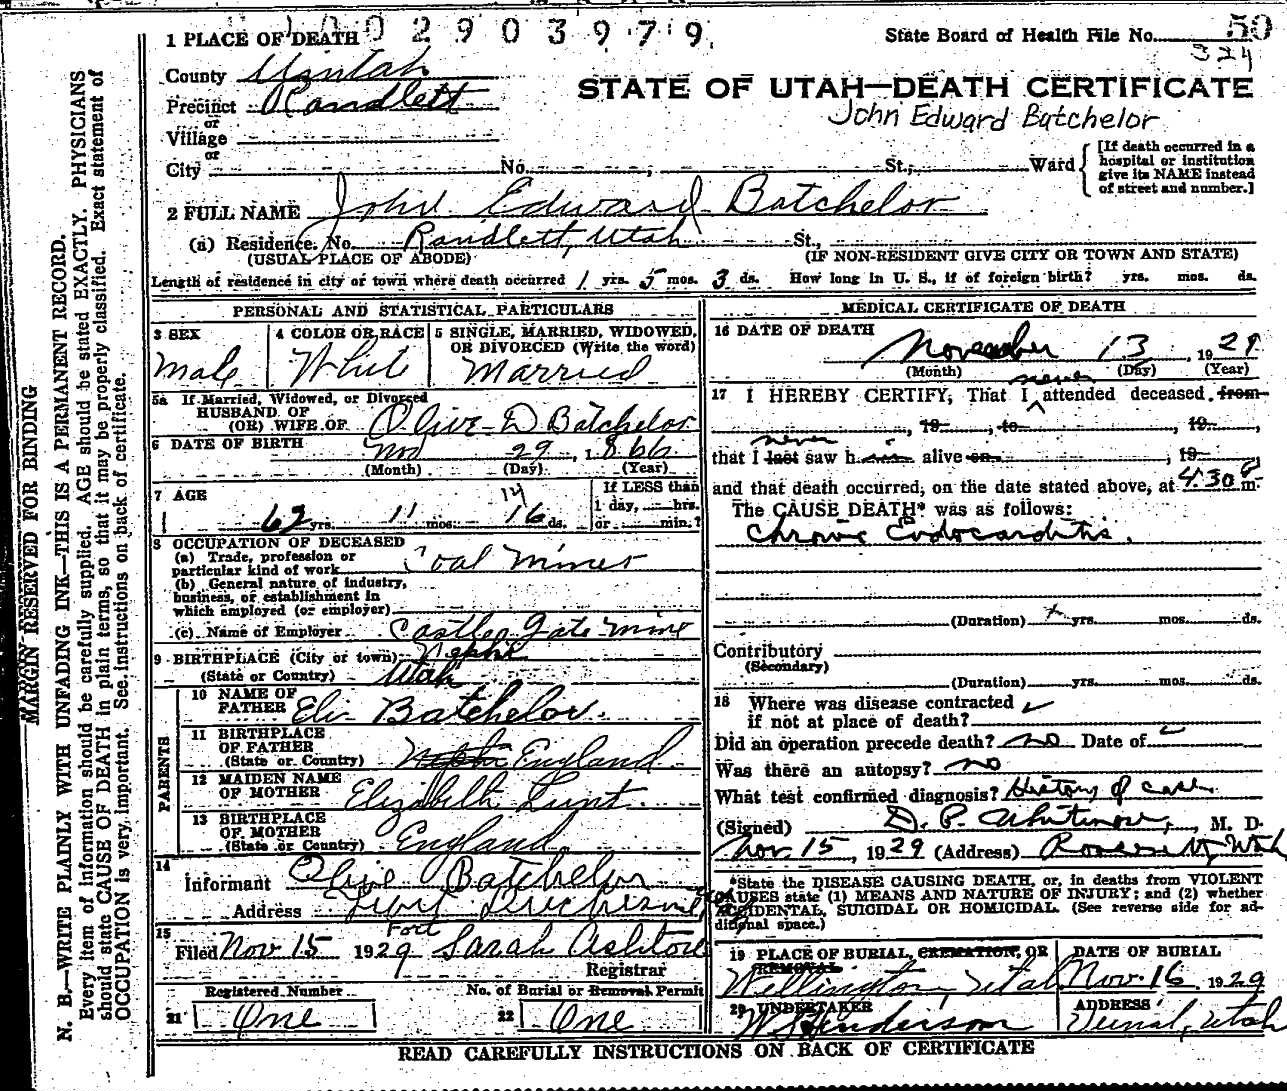 0 2 9 0 3 9 7 9
1 PLACE OF DEATH
State Board of Health File No. 50
324
County Uintah
STATE OF UTAH—DEATH CERTIFICATE
Precinct Randlett
or
John Edward Batchelor
Village
or
City No. St., Ward
[If death occurred in a hospital or institution give its NAME instead of street and number.]
2 FULL NAME John Edward Batchelor
(a) Residence. No. Randlett, Utah St.,
(USUAL PLACE OF ABODE) (IF NON-RESIDENT GIVE CITY OR TOWN AND STATE)
Length of residence in city or town where death occurred 1 yrs. 5 mos. 3 ds. How long in U. S., if of foreign birth? yrs. mos. ds.
PERSONAL AND STATISTICAL PARTICULARS
3 SEX
Male
4 COLOR OR RACE
White
5 SINGLE, MARRIED, WIDOWED, OR DIVORCED (Write the word)
Married
5a If Married, Widowed, or Divorced
HUSBAND OF
(OR) WIFE OF Olive D Batchelor
6 DATE OF BIRTH Nov 29, 1866
(Month) (Day) (Year)
7 AGE
62 yrs. 11 mos. 16 ds.
14
If LESS than 1 day, hrs.
or min.?
8 OCCUPATION OF DECEASED
(a) Trade, profession or particular kind of work Coal Miner
(b) General nature of industry, business, or establishment in which employed (or employer)
(c) Name of Employer Castle Gate Mine
9 BIRTHPLACE (City or town) Nephi
(State or Country) Utah
PARENTS
10 NAME OF FATHER Eli Batchelor.
11 BIRTHPLACE OF FATHER
(State or Country) England
12 MAIDEN NAME OF MOTHER Elizabeth Lunt.
13 BIRTHPLACE OF MOTHER
(State or Country) England
14
Informant Olive Batchelor
Address Fort Duchesne
15
Filed Nov 15 1929 Sarah Ashton
Fort
Registrar
Registered Number
21 One
No. of Burial or Removal Permit
22 One
MEDICAL CERTIFICATE OF DEATH
16 DATE OF DEATH
November 13, 1929
(Month) (Day) (Year)
never
17 I HEREBY CERTIFY, That I attended deceased from
, 19 , to , 19 ,
never
that I last saw h alive on , 19
and that death occurred, on the date stated above, at 4:30 P m.
The CAUSE DEATH* was as follows:
Chronic Endocarditis.
(Duration) yrs. mos. ds.
Contributory
(Secondary)
(Duration) yrs. mos. ds.
18 Where was disease contracted
if not at place of death?
Did an operation precede death? no Date of
Was there an autopsy? no
What test confirmed diagnosis? History of case
(Signed) D. P. Whitmore, M. D.
Nov. 15, 1929 (Address) Roosevelt, Utah
*State the DISEASE CAUSING DEATH, or, in deaths from VIOLENT
CAUSES state (1) MEANS AND NATURE OF INJURY; and (2) whether
ACCIDENTAL, SUICIDAL OR HOMICIDAL. (See reverse side for additional space.)
19 PLACE OF BURIAL, CREMATION, OR REMOVAL
Wellington, Utah
DATE OF BURIAL
Nov. 16 1929
20 UNDERTAKER
ADDRESS
Vernal, Utah
READ CAREFULLY INSTRUCTIONS ON BACK OF CERTIFICATE
MARGIN RESERVED FOR BINDING
N. B.—WRITE PLAINLY WITH UNFADING INK—THIS IS A PERMANENT RECORD.
Every item of information should be carefully supplied. AGE should be stated EXACTLY. PHYSICIANS
should state CAUSE OF DEATH in plain terms, so that it may be properly classified. Exact statement of
OCCUPATION is very important. See instructions on back of certificate.